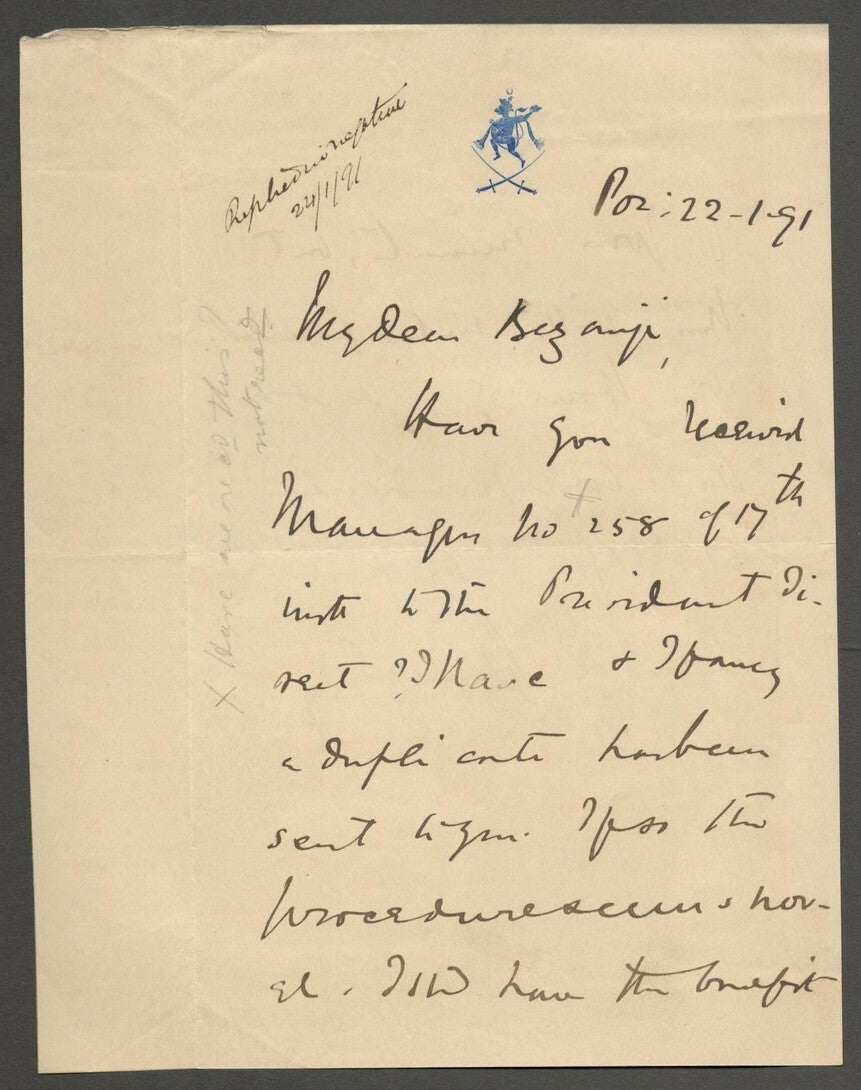 Replied in negative
24/1/91
Por: 22-1-91
My dear Bezonji,
Have you received
Manager's No + 258 of 17th
inst to the President di-
rect? I have & I fancy
a duplicate has been
sent to you. If so the
procedure seems nov-
el. I shd have the benefit
x Have we recd this?
not recd